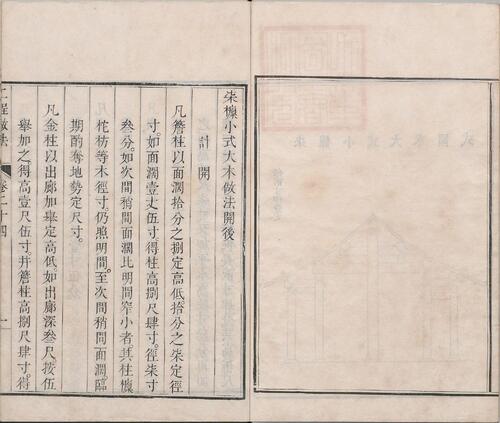 柒檩小式大木做法開後
計開
凡簷柱以面濶拾分之捌定高低拾分之柒定徑
寸如面濶壹丈伍寸得柱高捌尺肆寸徑柒寸
叁分如次間稍間面濶比明間窄小者其柱檩
柁枋等木徑寸仍照明間至次間稍間面濶臨
期酌奪地勢定尺寸
凡金柱以出廊加舉定高低如出廊深叁尺按伍
舉加之得高壹尺伍寸并簷柱高捌尺肆寸得
工程做法 卷二十四 一